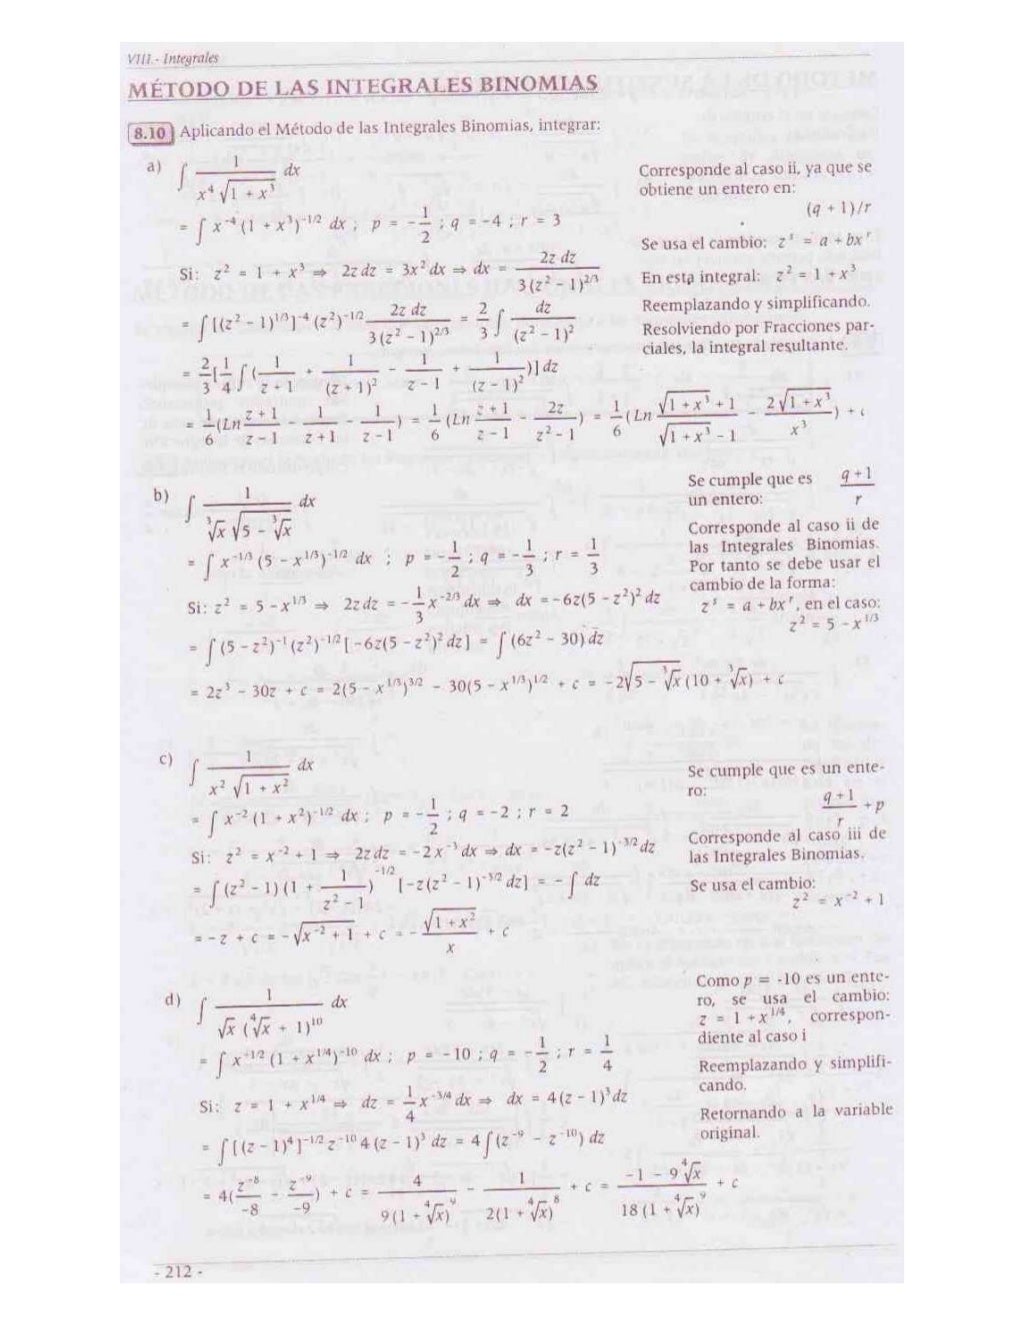 VIII.- Integrales
MÉTODO DE LAS INTEGRALES BINOMIAS
8.10 Aplicando el Método de las Integrales Binomias, integrar:
a) ∫ 1/(x⁴ √(1 + x³)) dx
Corresponde al caso ii, ya que se
obtiene un entero en:
(q + 1)/r
= ∫ x⁻⁴ (1 + x³)^(-1/2) dx ; p = -1/2 ; q = -4 ; r = 3
Se usa el cambio: z^s = a + bx^r
Si: z² = 1 + x³ ⇒ 2z dz = 3x² dx ⇒ dx = 2z dz / 3(z² - 1)^(2/3)
En esta integral: z² = 1 + x³
= ∫ [(z² - 1)^(1/3)]⁻⁴ (z²)^(-1/2) 2z dz / 3(z² - 1)^(2/3) = 2/3 ∫ dz/(z² - 1)²
Reemplazando y simplificando.
Resolviendo por Fracciones par-
ciales, la integral resultante.
= 2/3 [1/4 ∫ (1/(z + 1) + 1/(z + 1)² - 1/(z - 1) + 1/(z - 1)²)] dz
= 1/6 (Ln (z + 1)/(z - 1) - 1/(z + 1) - 1/(z - 1)) = 1/6 (Ln (z + 1)/(z - 1) - 2z/(z² - 1)) = 1/6 (Ln (√(1 + x³) + 1)/(√(1 + x³) - 1) - 2√(1 + x³)/x³) + c
b) ∫ 1/(∛x √(5 - ∛x)) dx
Se cumple que es (q + 1)/r
un entero:
= ∫ x^(-1/3) (5 - x^(1/3))^(-1/2) dx ; p = -1/2 ; q = -1/3 ; r = 1/3
Corresponde al caso ii de
las Integrales Binomias.
Por tanto se debe usar el
cambio de la forma:
Si: z² = 5 - x^(1/3) ⇒ 2z dz = -1/3 x^(-2/3) dx ⇒ dx = -6z(5 - z²)² dz
z^s = a + bx^r, en el caso:
z² = 5 - x^(1/3)
= ∫ (5 - z²)⁻¹ (z²)^(-1/2) [-6z(5 - z²)² dz] = ∫ (6z² - 30) dz
= 2z³ - 30z + c = 2(5 - x^(1/3))^(3/2) - 30(5 - x^(1/3))^(1/2) + c = -2√(5 - ∛x) (10 + ∛x) + c
c) ∫ 1/(x² √(1 + x²)) dx
Se cumple que es un ente-
ro: (q + 1)/r + p
= ∫ x⁻² (1 + x²)^(-1/2) dx ; p = -1/2 ; q = -2 ; r = 2
Corresponde al caso iii de
las Integrales Binomias.
Si: z² = x⁻² + 1 ⇒ 2z dz = -2x⁻³ dx ⇒ dx = -z(z² - 1)^(-3/2) dz
= ∫ (z² - 1) (1 + 1/(z² - 1))^(-1/2) [-z(z² - 1)^(-3/2) dz] = -∫ dz
Se usa el cambio:
z² = x⁻² + 1
= -z + c = -√(x⁻² + 1) + c = -√(1 + x²)/x + c
d) ∫ 1/(√x (∜x + 1)¹⁰) dx
Como p = -10 es un ente-
ro, se usa el cambio:
z = 1 + x^(1/4), correspon-
diente al caso i
= ∫ x^(-1/2) (1 + x^(1/4))⁻¹⁰ dx ; p = -10 ; q = -1/2 ; r = 1/4
Reemplazando y simplifi-
cando.
Si: z = 1 + x^(1/4) ⇒ dz = 1/4 x^(-3/4) dx ⇒ dx = 4(z - 1)³ dz
Retornando a la variable
original.
= ∫ [(z - 1)⁴]^(-1/2) z⁻¹⁰ 4(z - 1)³ dz = 4 ∫ (z⁻⁹ - z⁻¹⁰) dz
= 4(z⁻⁸/-8 - z⁻⁹/-9) + c = 4/(9(1 + ∜x)⁹) - 1/(2(1 + ∜x)⁸) + c = (-1 - 9∜x)/(18(1 + ∜x)⁹) + c
- 212 -